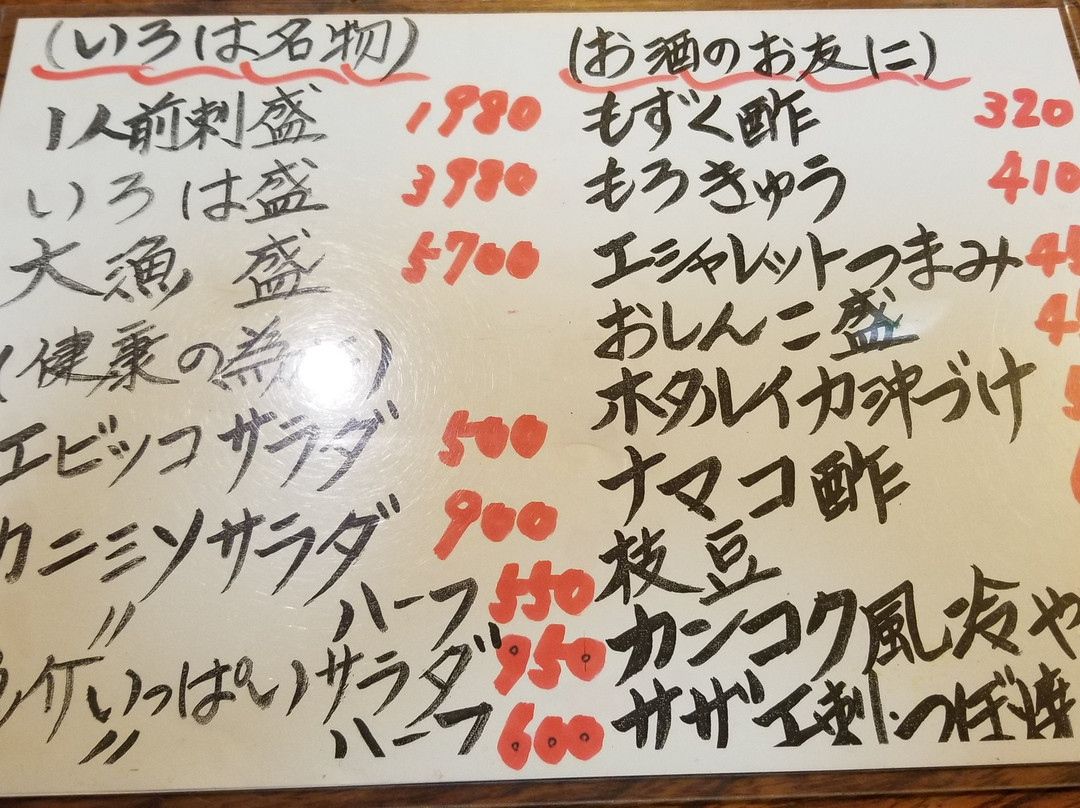 (いろは名物)
1人前刺盛 1980
いろは盛 3980
大漁盛 5700
(健康の為に)
エビッコサラダ 500
カニミソサラダ 900
〃 ハーフ 550
いっぱいサラダ 950
〃 ハーフ 600
(お酒のお友に)
もずく酢 320
もろきゅう 410
エシャレットつまみ
おしんこ盛
ホタルイカ沖づけ
ナマコ酢
枝豆
カンコク風冷や
サザエ刺し・つぼ焼